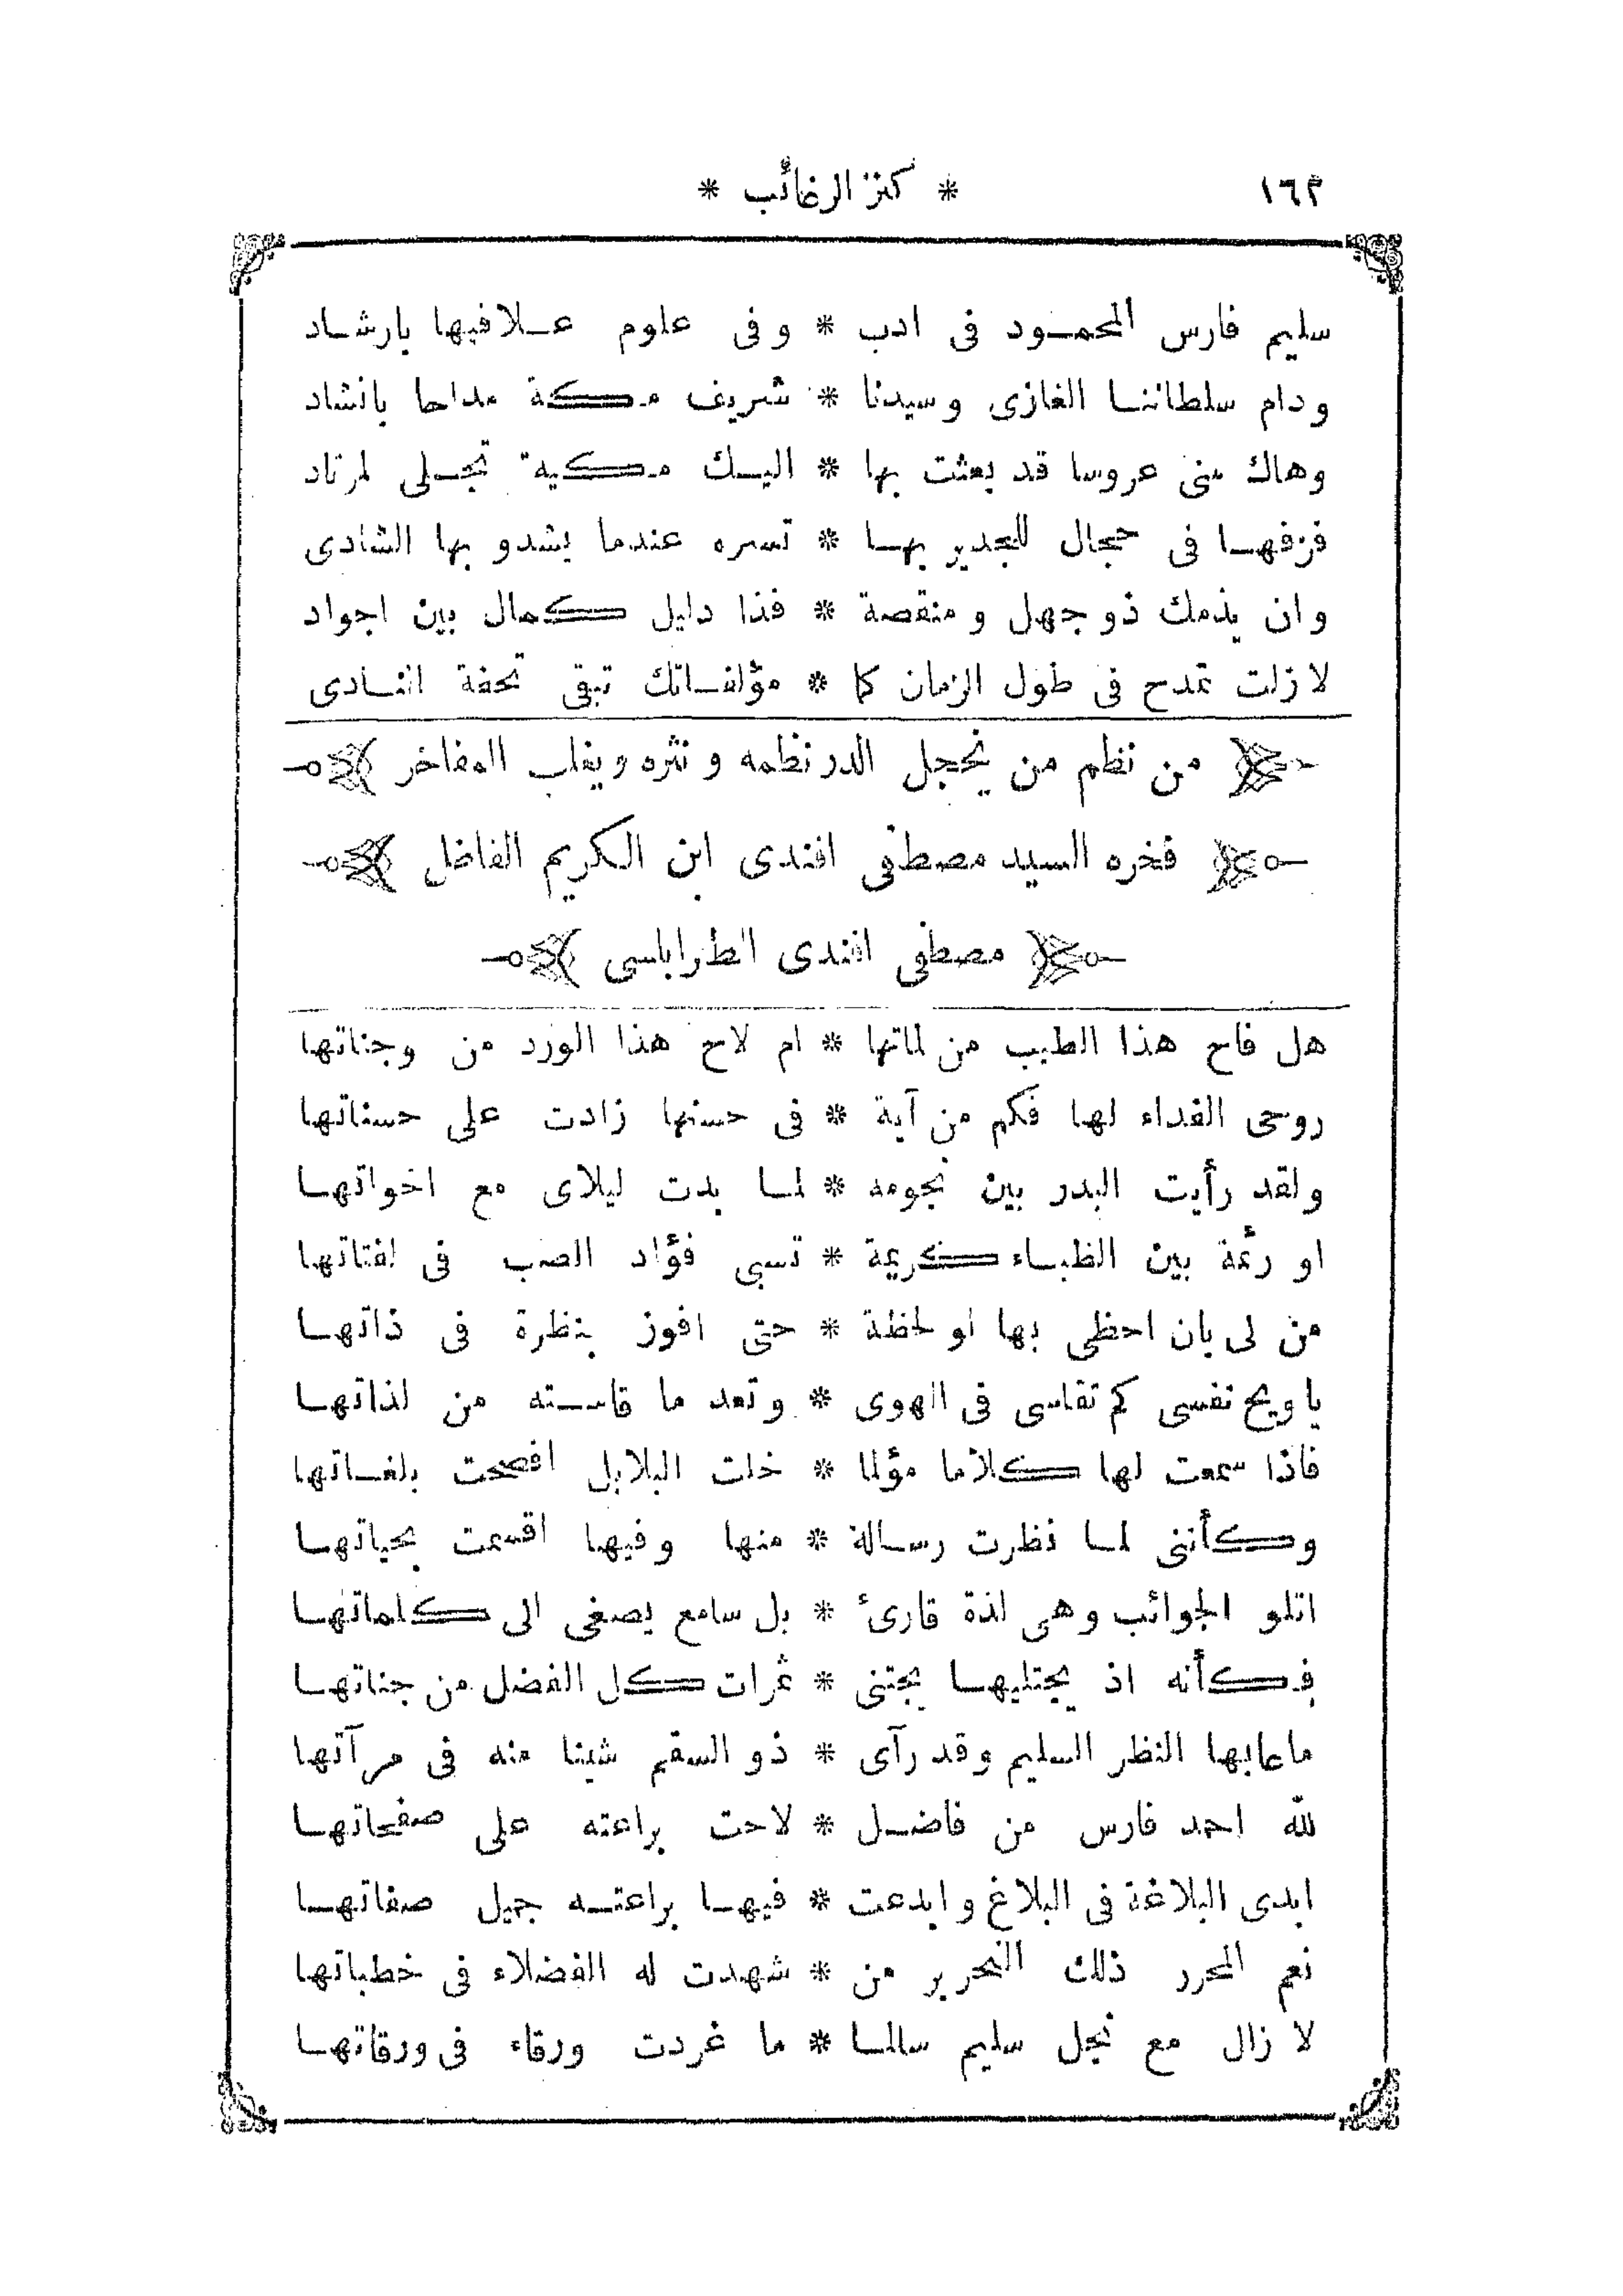 ١٦٢ * كنز الرغائب *
سليم فارس المحمود فى ادب * وفى علوم علافيها بارشاد
ودام سلطاننا الغازى وسيدنا * شريف مكة مداحا بانشاد
وهاك منى عروسا قد بعثت بها * اليك مكية تجلى لمرتاد
فزفها فى حجال للجدير بها * تسره عندما يشدو بها الشادى
وان يذمك ذو جهل ومنقصة * فذا دليل كمال بين اجواد
لا زلت تمدح فى طول الزمان كما * مؤلفاتك تبقى تحفة النادى
من نظم من يخجل الدر نظمه ونثره ويغلب المفاخر
فخره السيد مصطفى افندى ابن الكريم الفاضل
مصطفى افندى الطرابلسى
هل فاح هذا الطيب من لماتها * ام لاح هذا الورد من وجناتها
روحى الفداء لها فكم من آية * فى حسنها زادت على حسناتها
ولقد رأيت البدر بين نجومه * لما بدت ليلاى مع اخواتها
او رئمة بين الظباء كريمة * تسبى فؤاد الصب فى لفتاتها
من لى بان احظى بها لو لحظة * حتى افوز بنظرة فى ذاتها
ياويح نفسى كم تقاسى فى الهوى * وتعد ما قاسته من لذاتها
فاذا سمعت لها كلاما مؤلما * خلت البلابل افصحت بلغاتها
وكأننى لما نظرت رسالة * منها وفيها اقسمت بحياتها
اتلو الجوائب وهى لذة قارئ * بل سامع يصغى الى كلماتها
فكأنه اذ يجتليها يجتنى * ثمرات كل الفضل من جناتها
ماعابها النظر السليم وقد رآى * ذو السقم شينا منه فى مرآتها
لله احمد فارس من فاضل * لاحت براعته على صفحاتها
ابدى البلاغة فى البلاغ وابدعت * فيها براعته جميل صفاتها
نعم المحرر ذلك النحرير من * شهدت له الفضلاء فى خطباتها
لا زال مع نجل سليم سالما * ما غردت ورقاء فى ورقاتها